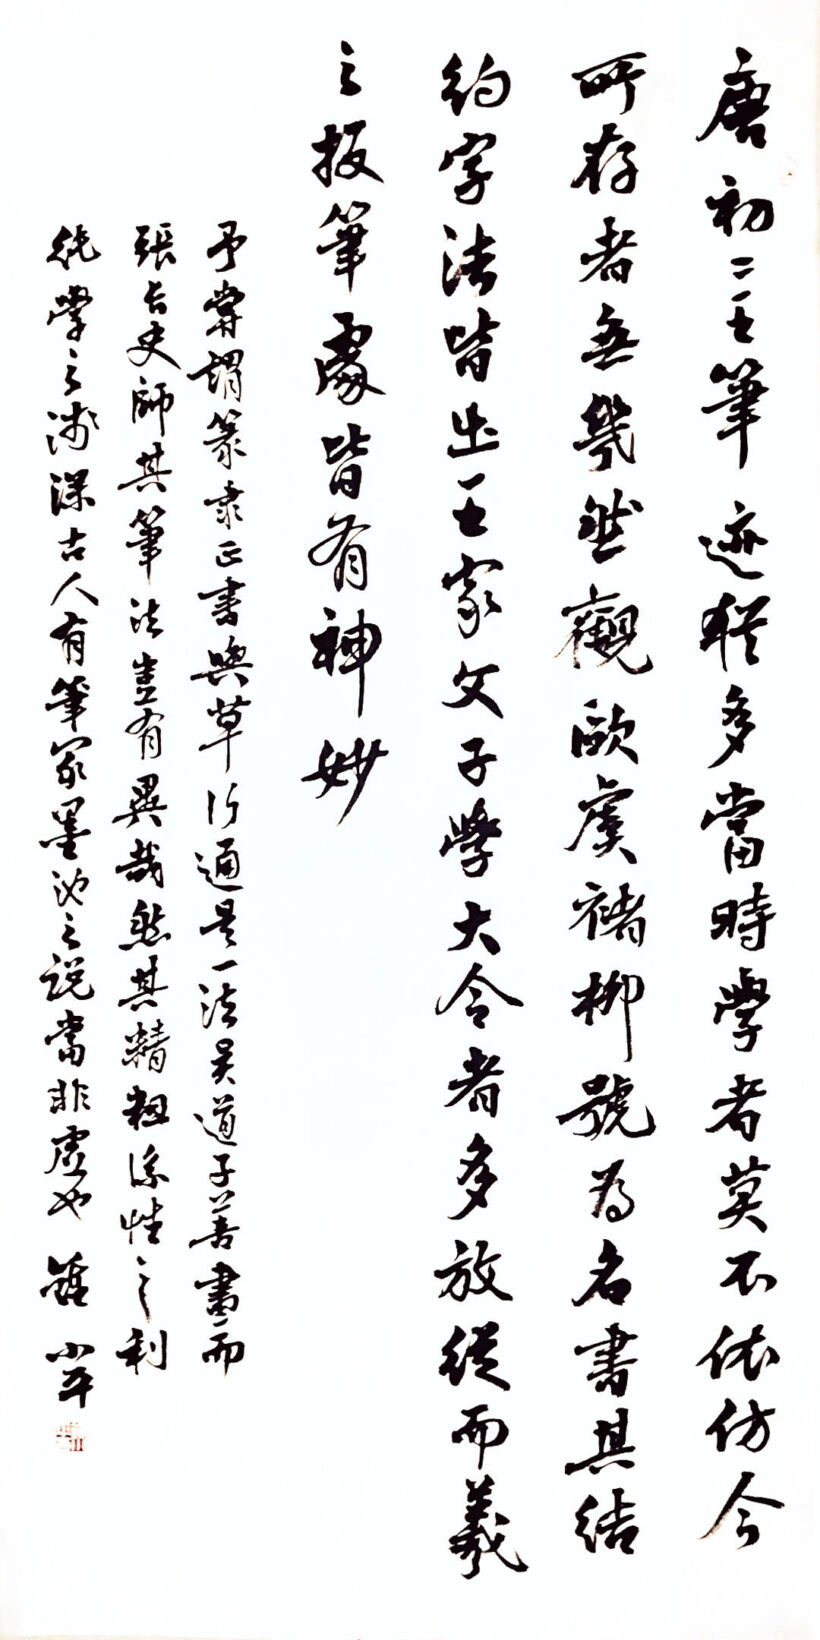 唐初二王筆迹猶多當時學者莫不依仿今
所存者無幾然觀歐虞褚柳號為名書其結
約字法皆出王家父子學大令者多放縱而羲
之投筆處皆有神妙
予嘗謂篆隶正書與草行通是一法吴道子善書而
張長史師其筆法豈有異哉然其精粗係性之利
鈍學之淺深古人有筆冢墨池之説當非虚也 小平